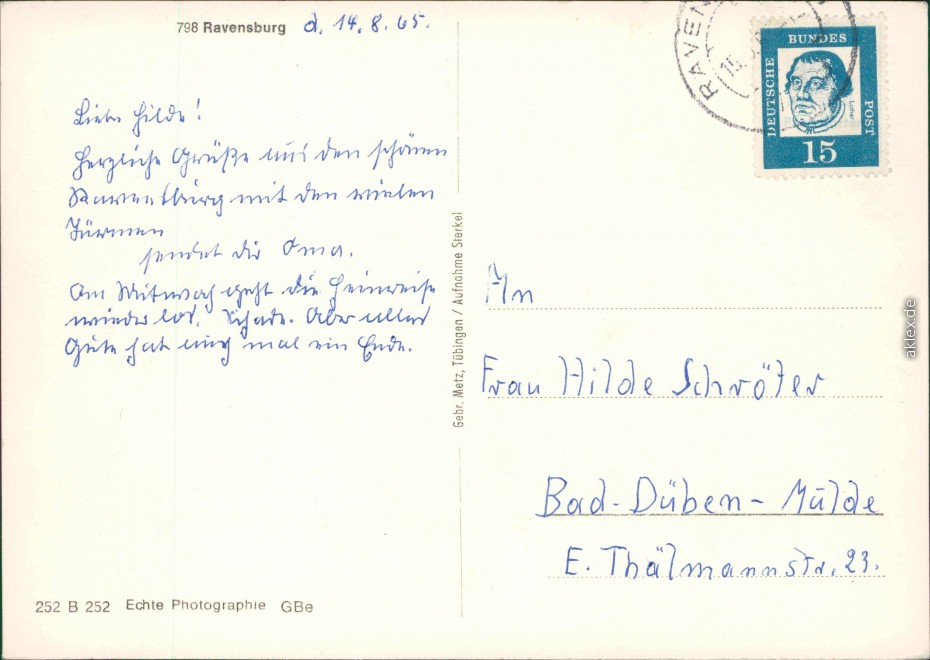 798 Ravensburg d. 14. 8. 65.
Liebe Hilde!
Herzliche Grüße aus den schönen
Ravensburg mit den vielen
Türmen
sendet dir Oma.
Am Mittwoch geht die Heimreise
wieder los. Schade. Aber alles
Gute hat auch mal ein Ende.
252 B 252 Echte Photographie GBe
Gebr. Metz, Tübingen / Aufnahme Sierkel
RAVEN
15.
DEUTSCHE
BUNDES
POST
Luther
15
An
Frau Hilde Schröter
Bad-Düben-Mulde
E. Thälmannstr. 23.
aklex.de